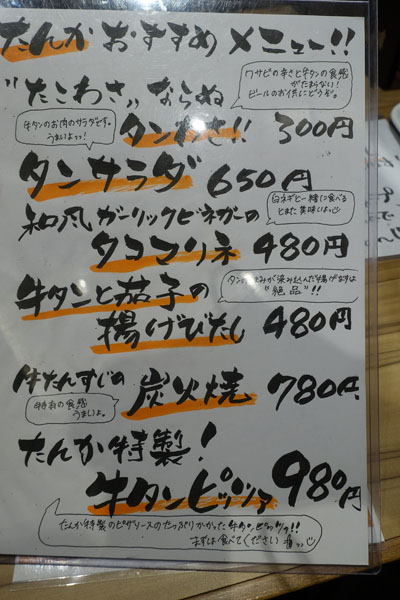 たんかおすすめメニュー!!
"たこわさ"ならぬ
ワサビの辛さと牛タンの食感
がたまらない!
ビールのお供にどうぞ。
タンわさ!! 300円
牛タンのお肉のサラダです。
うまいよっ!
タンサラダ 650円
和風ガーリックビネガーの
タコマリネ 480円
白ネギと一緒に食べる
と美味しいよ
牛タンと茄子の
揚げびたし 480円
"絶品"!!
牛たんすじの
炭火焼 780円
特有の食感
うまいよ。
たんか特製!
牛タンピッツァ 980円
たんか特製のピザソースのたっぷりかかった牛タンピッツァ!!
まずは食べてください